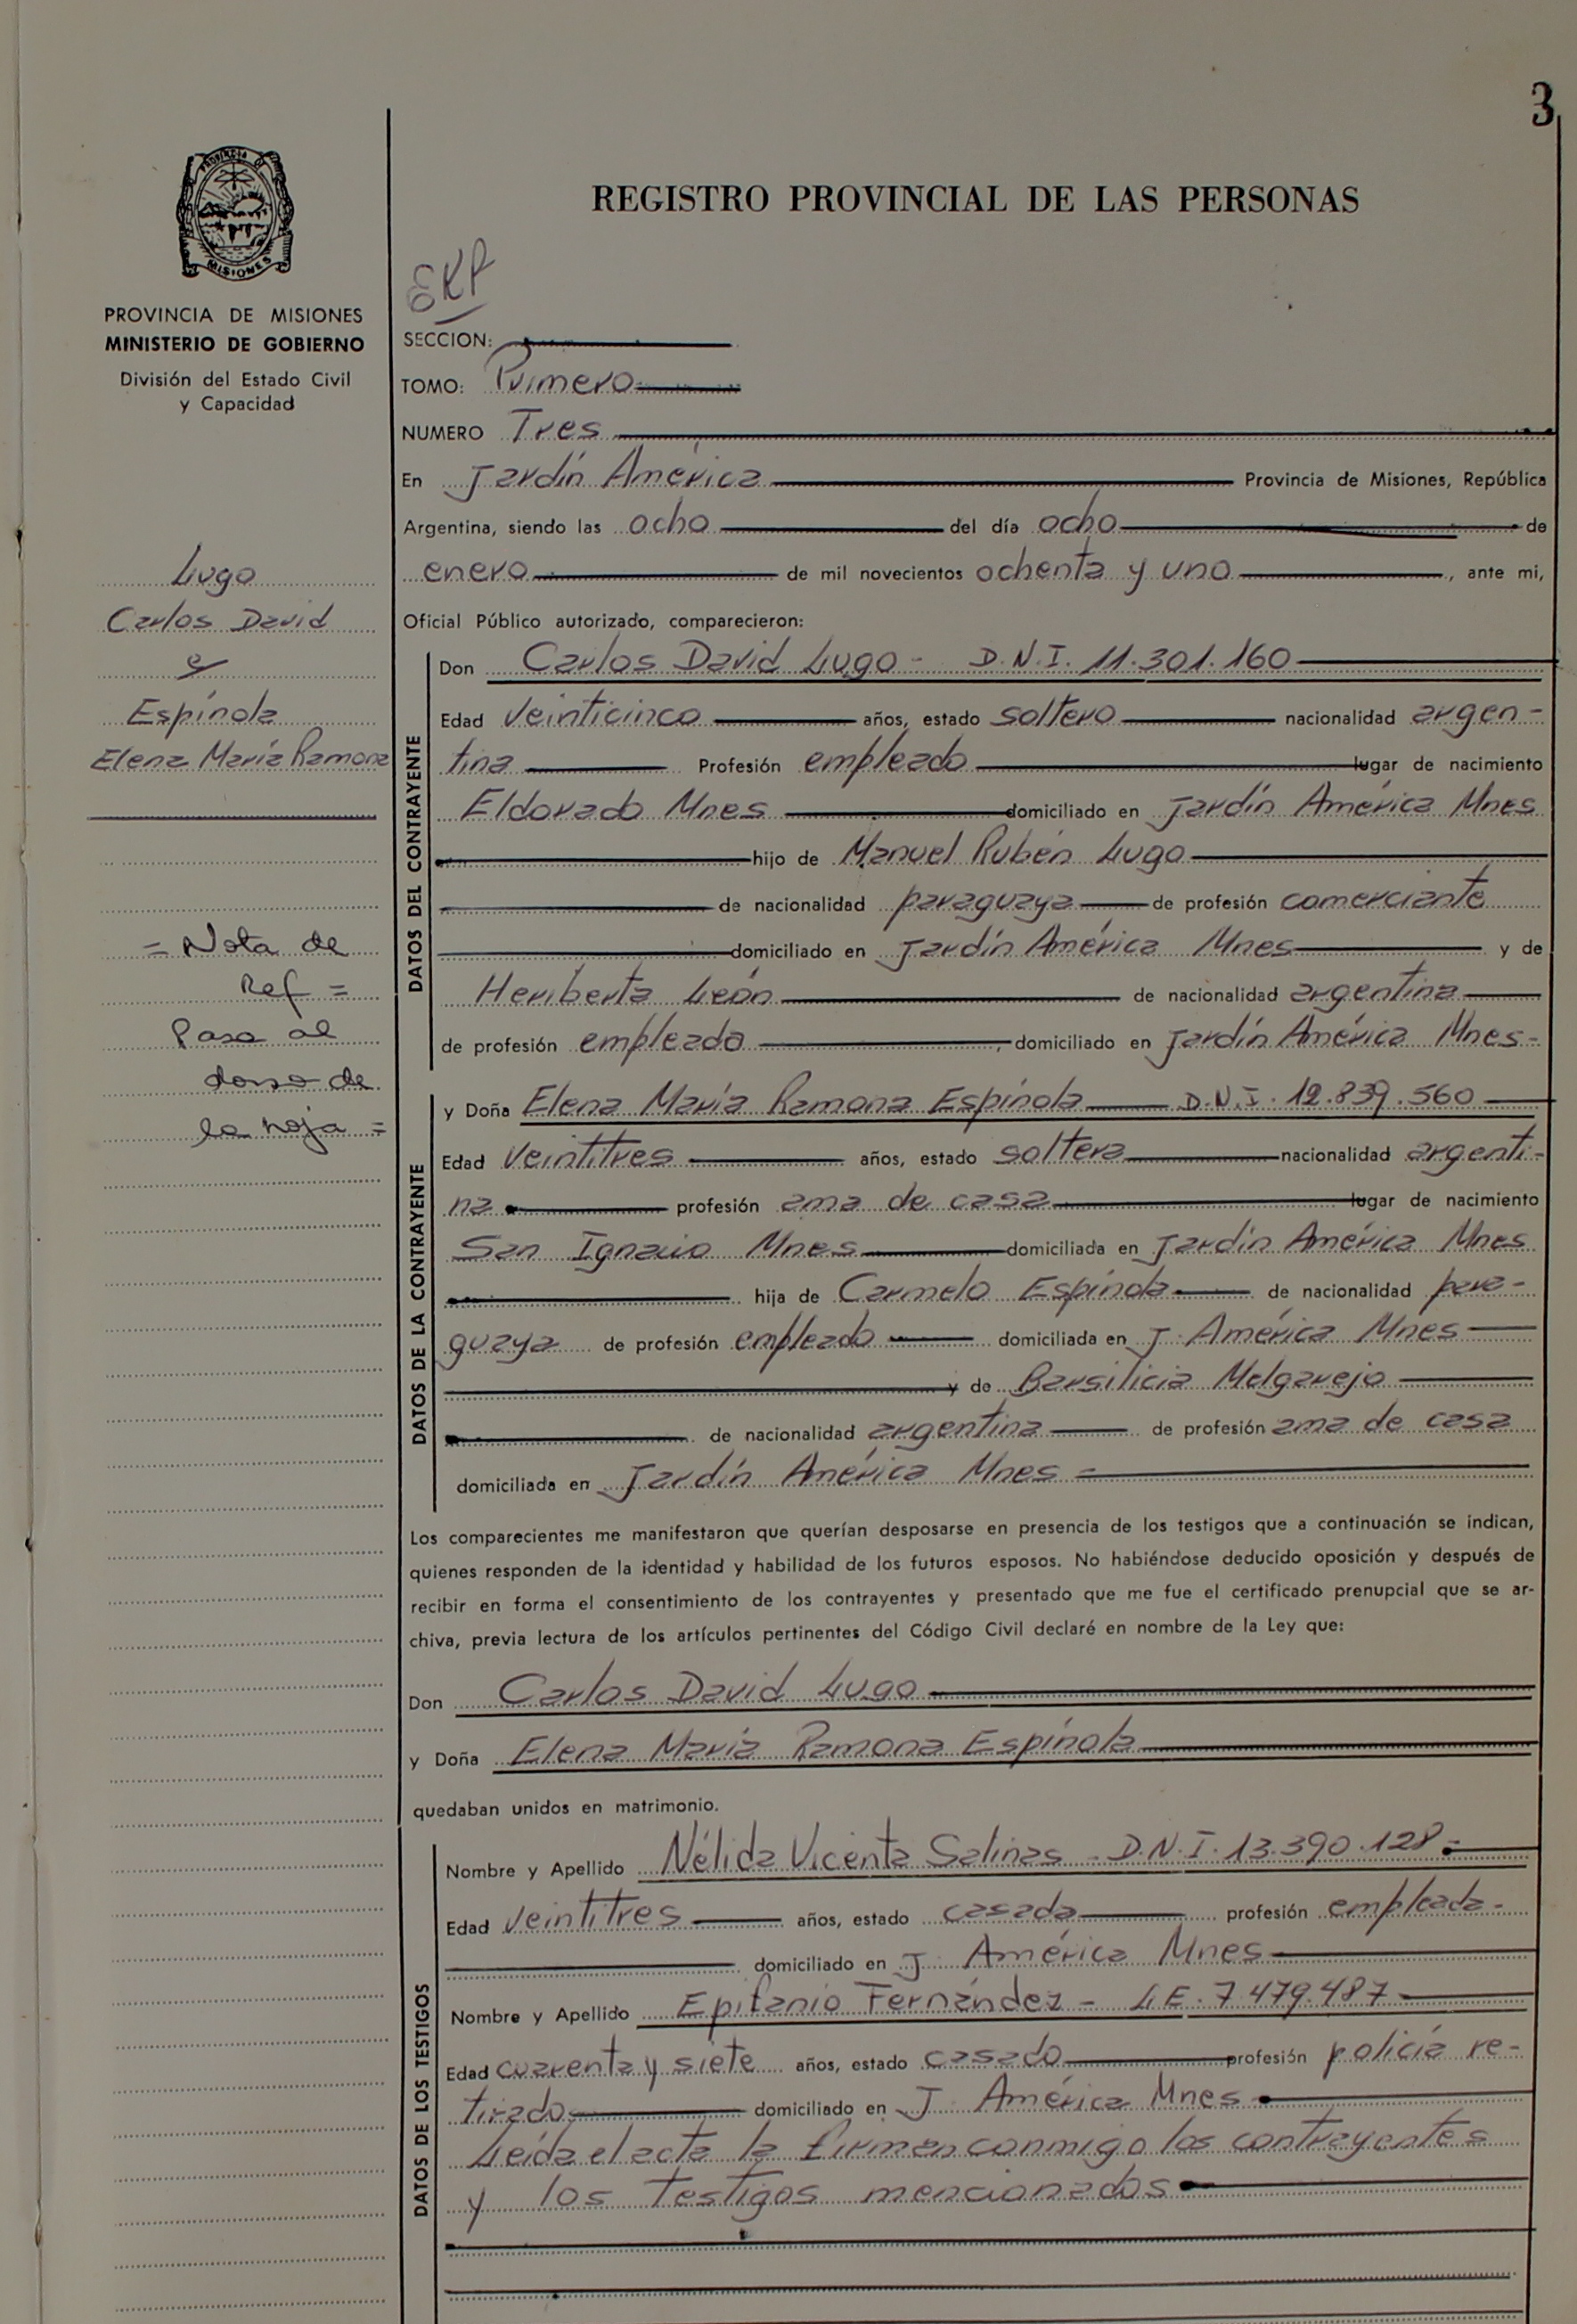 3
PROVINCIA DE
MISIONES
PROVINCIA DE MISIONES
MINISTERIO DE GOBIERNO
División del Estado Civil
y Capacidad
Lugo
Carlos David
y
Espínola
Elena María Ramona
= Nota de
Ref =
Pasa al
dorso de
la hoja =
REGISTRO PROVINCIAL DE LAS PERSONAS
SECCION:
TOMO: Primero
NUMERO Tres
En Jardín América Provincia de Misiones, República
Argentina, siendo las ocho del día ocho de
enero de mil novecientos ochenta y uno, ante mi,
Oficial Público autorizado, comparecieron:
DATOS DEL CONTRAYENTE
Don Carlos David Lugo - D.N.I. 11.301.160
Edad veinticinco años, estado soltero nacionalidad argen-
tina Profesión empleado lugar de nacimiento
Eldorado Mnes domiciliado en Jardín América Mnes
hijo de Manuel Rubén Lugo
de nacionalidad paraguaya de profesión comerciante
domiciliado en Jardín América Mnes y de
Heriberta León de nacionalidad argentina
de profesión empleada domiciliado en Jardín América Mnes-
DATOS DE LA CONTRAYENTE
y Doña Elena María Ramona Espínola D.N.I. 12.839.560
Edad veintitres años, estado soltera nacionalidad argenti-
na profesión ama de casa lugar de nacimiento
San Ignacio Mnes domiciliada en Jardín América Mnes
hija de Carmelo Espínola de nacionalidad para-
guaya de profesión empleado domiciliada en J. América Mnes
y de Barsilicia Melgarejo
de nacionalidad argentina de profesión ama de casa
domiciliada en Jardín América Mnes -
Los comparecientes me manifestaron que querían desposarse en presencia de los testigos que a continuación se indican,
quienes responden de la identidad y habilidad de los futuros esposos. No habiéndose deducido oposición y después de
recibir en forma el consentimiento de los contrayentes y presentado que me fue el certificado prenupcial que se ar-
chiva, previa lectura de los artículos pertinentes del Código Civil declaré en nombre de la Ley que:
Don Carlos David Lugo
y Doña Elena María Ramona Espínola
quedaban unidos en matrimonio.
DATOS DE LOS TESTIGOS
Nombre y Apellido Nélida Vicenta Salinas - D.N.I. 13.390.128-
Edad veintitres años, estado casada profesión empleada-
domiciliado en J. América Mnes
Nombre y Apellido Epifanio Fernández - L.E. 7.479.487
Edad cuarenta y siete años, estado casado profesión policía re-
tirado domiciliado en J. América Mnes
Leída el acta la firman conmigo los contrayentes
y los testigos mencionados